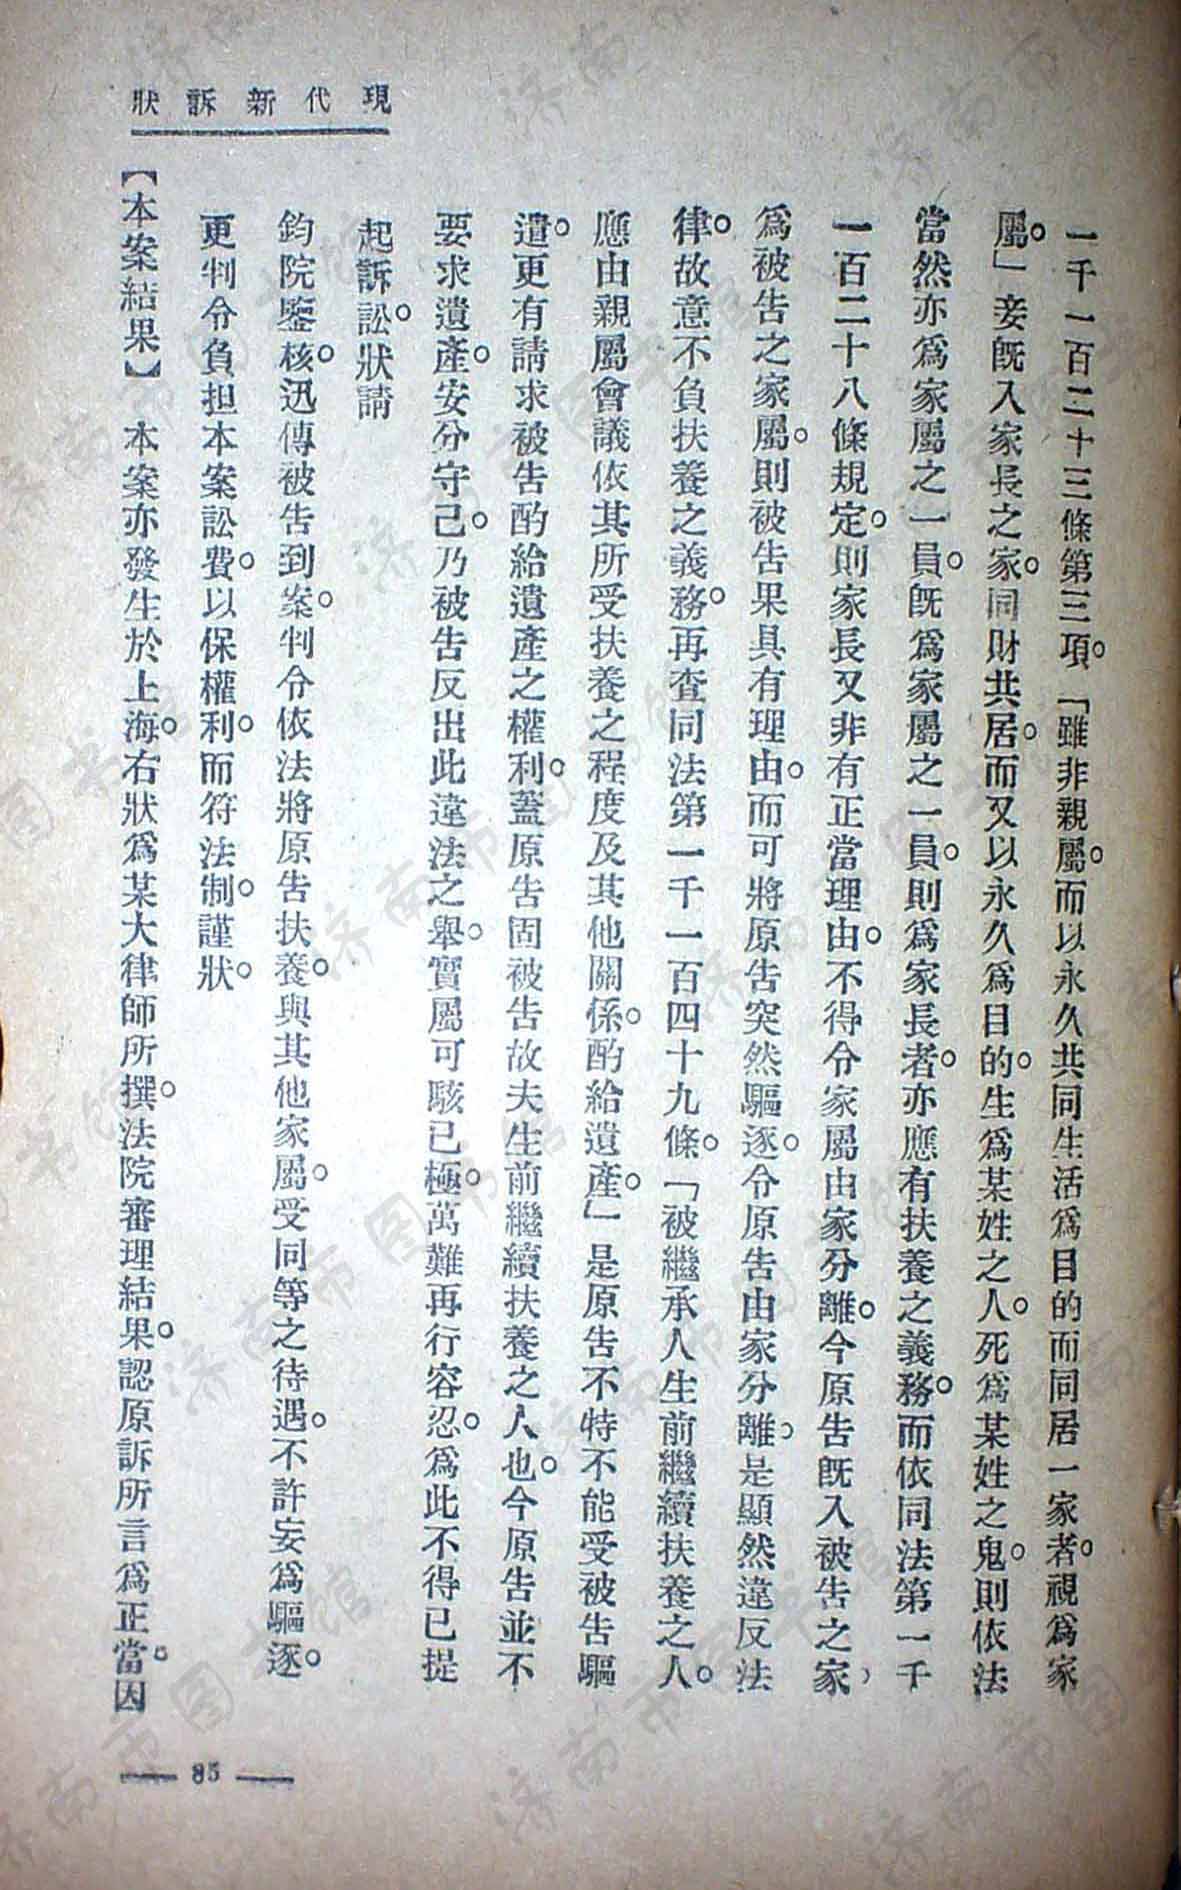 現代新訴狀
一千一百二十三條第三項。「雖非親屬。而以永久共同生活爲目的而同居一家者。視爲家
屬。」妾旣入家長之家。同財共居。而又以永久爲目的。生爲某姓之人。死爲某姓之鬼。則依法
當然亦爲家屬之一員。旣爲家屬之一員。則爲家長者。亦應有扶養之義務。而依同法第一千
一百二十八條規定。則家長又非有正當理由。不得令家屬由家分離。今原告旣入被告之家，
爲被告之家屬。則被告果具有理由。而可將原告突然驅逐。令原告由家分離。是顯然違反法
律。故意不負扶養之義務。再查同法第一千一百四十九條。「被繼承人生前繼續扶養之人。
應由親屬會議依其所受扶養之程度及其他關係。酌給遺產。」是原告不特不能受被告驅
遣。更有請求被告酌給遺產之權利。蓋原告固被告故夫生前繼續扶養之人也。今原告並不
要求遺產。安分守己。乃被告反出此違法之舉。實屬可駭已極。萬難再行容忍。爲此不得已提
起訴訟。狀請
鈞院鑒核。迅傳被告到案。判令依法將原告扶養。與其他家屬。受同等之待遇。不許妄爲驅逐。
更判令負担本案訟費。以保權利。而符法制。謹狀。
【本案結果】 本案亦發生於上海。右狀爲某大律師所撰。法院審理結果。認原訴所言爲正當。因
— 85 —
济南市图书馆